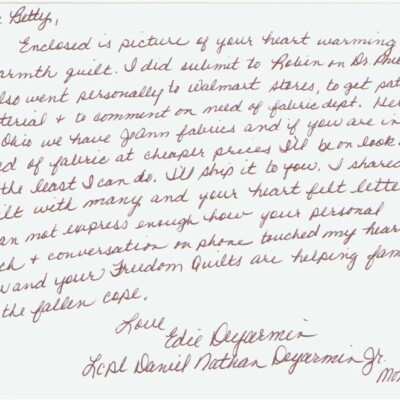 Betty,
Enclosed is picture of your heart warming
armth quilt. I did submit to Robin on Dr
lso went personally to Walmart stores, to get pat
terial + to comment on need of fabric dept. He
Ohio we have JoAnn fabrics and if you are in
d of fabric at cheaper prices I'll be on look
the least I can do. I'll ship it to you. I shared
ilt with many and your heart felt lette
an not express enough how your personal
ch + conversation on phone touched my hear
w and your Freedom Quilts are helping fam
the fallen cope.
Love
Edie Deyarmin
Lcpl Daniel Nathan Deyarmin Jr.
Mo